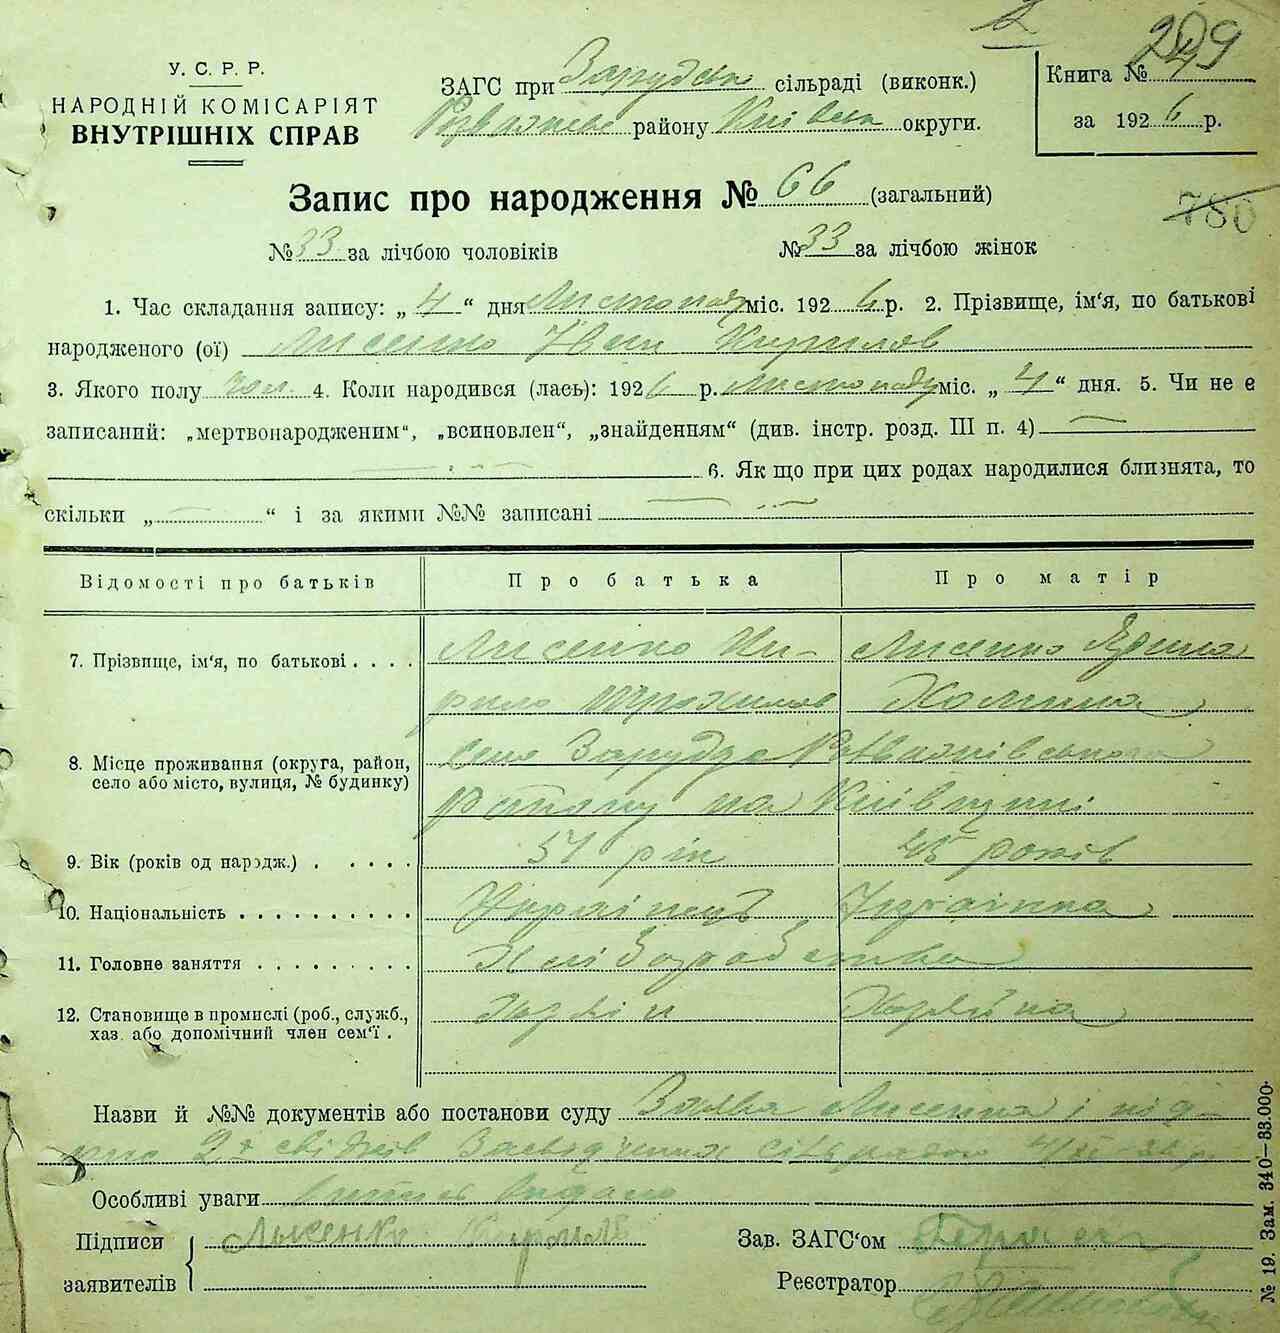 249
У. С. Р. Р.
НАРОДНІЙ КОМІСАРІЯТ
ВНУТРІШНІХ СПРАВ
ЗАГС при Зарудськ сільраді (виконк.)
району Київськ округи.
Книга №
за 1926 р.
Запис про народження № 66 (загальний)
780
№ 33 за лічбою чоловіків № 33 за лічбою жінок
1. Час складання запису: „ 4 “ дня Листопаду міс. 1926 р. 2. Прізвище, ім‘я, по батькові
народженого (ої) Лисенко Іван Кирилов
3. Якого полу чол. 4. Коли народився (лась): 1926 р. Листопаду міс. „ 4 “ дня. 5. Чи не є
записаний: „мертвонародженим“, „всиновлен“, „знайденням“ (див. інстр. розд. III п. 4)
6. Як що при цих родах народилися близнята, то
скільки „ “ і за якими №№ записані
Відомості про батьків Про батька Про матір
7. Прізвище, ім‘я, по батькові . . . . Лисенко Ки- Лисенко
рило
8. Місце проживання (округа, район, село Зарудде Розважівського
село або місто, вулиця, № будинку) району на Київщині
9. Вік (років од нарэдж.) . . . . . рік 45 років
10. Національність . . . . . . . . . . Українець Українка
11. Головне заняття . . . . . . . . . Хліборобство
12. Становище в промислі (роб., служб.,
хаз. або допомічний член сем‘ї . Хазяїн Хазяйка
Назви й №№ документів або постанови суду Заява Лисенка і під-
2х свідків сільрадою
Особливі уваги видано
Підписи Лысенко Зав. ЗАГС‘ом
заявителів Реєстратор
№ 19. Зам. 340—33.000.